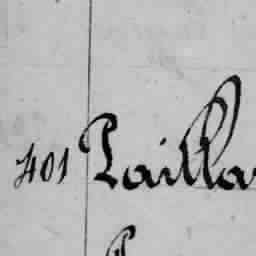 401 Pailla